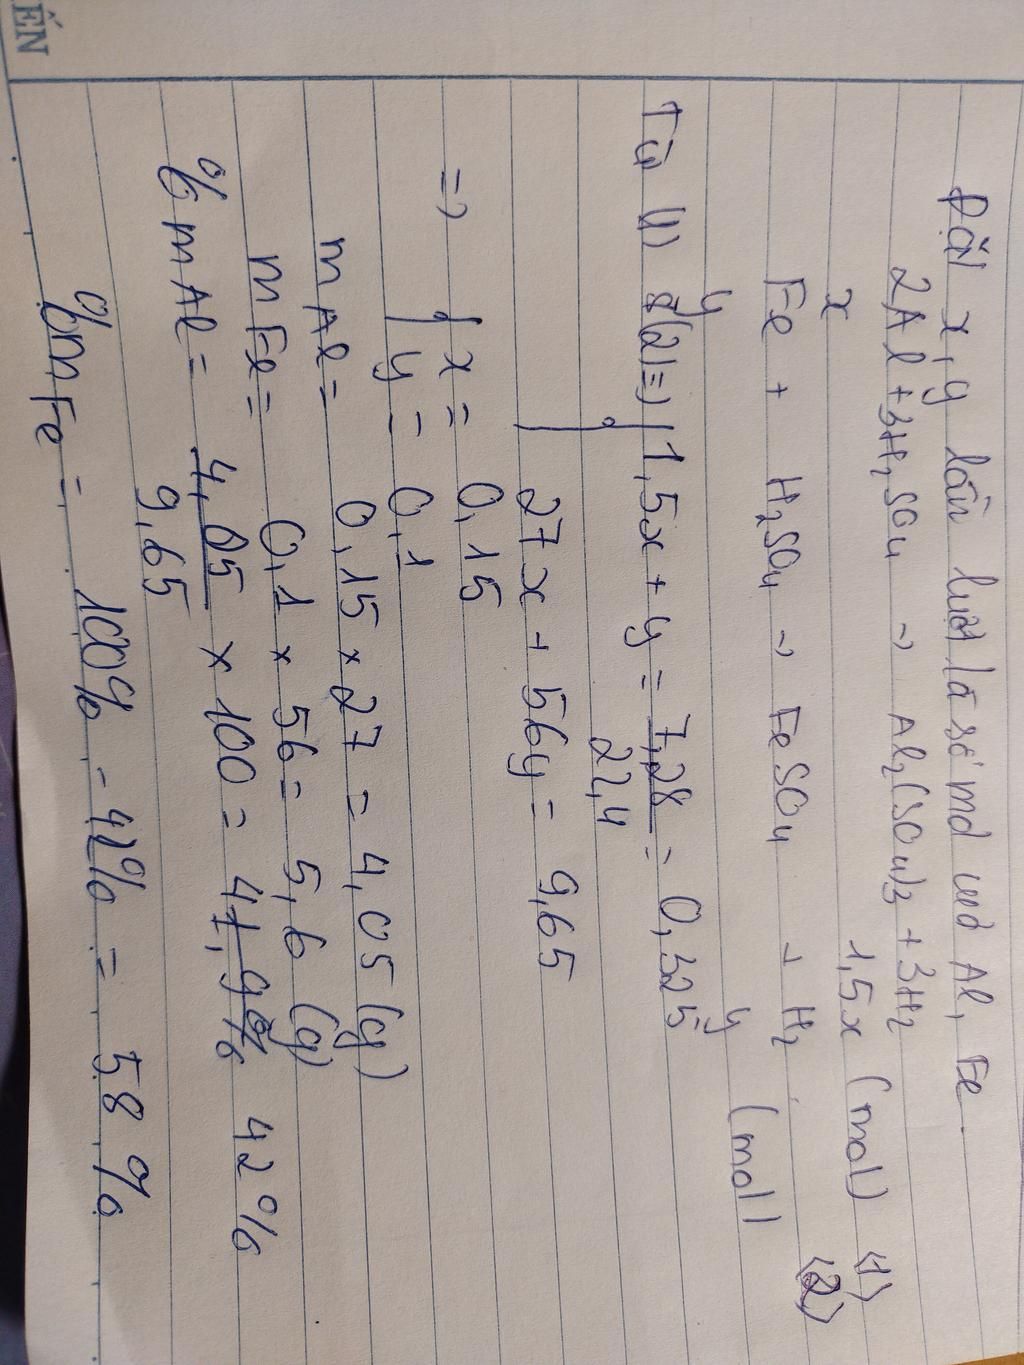 ẾN
Đặt x, y lần lượt là số mol của Al, Fe
2Al + 3H₂SO₄ → Al₂(SO₄)₃ + 3H₂
x 1,5x (mol) (1)
Fe + H₂SO₄ → FeSO₄ + H₂ (2)
y y (mol)
Từ (1) & (2) => { 1,5x + y = 7,28/22,4 = 0,325
27x + 56y = 9,65
=> { x = 0,15
y = 0,1
mAl = 0,15 × 27 = 4,05 (g)
mFe = 0,1 × 56 = 5,6 (g)
%mAl = 4,05/9,65 × 100 = 41,9% 42%
%mFe = 100% - 42% = 58%